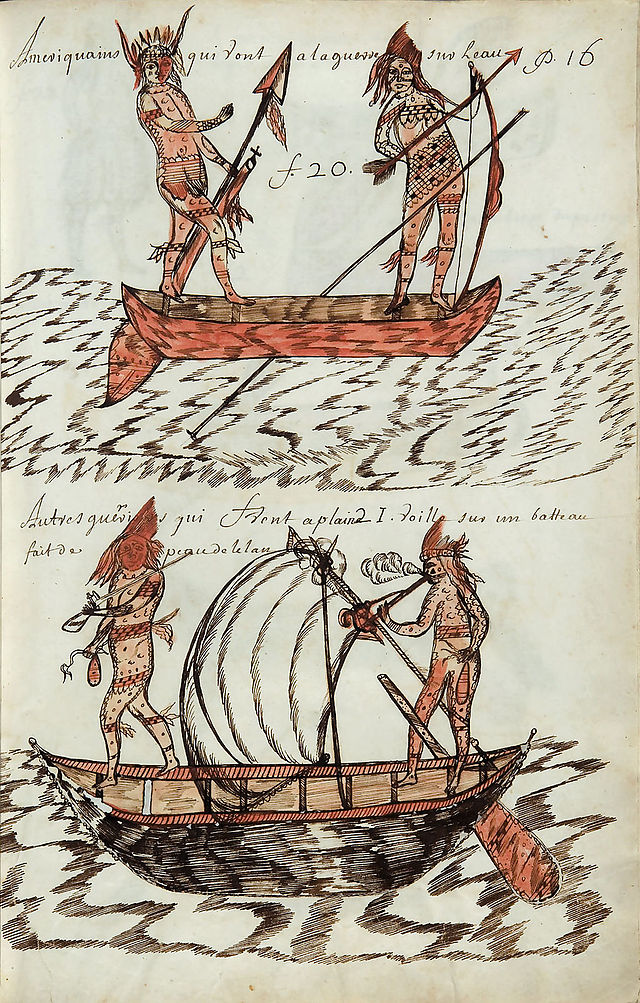 Ameriquains qui vont a la guerre sur leau p. 16
f 20.
Autres guerriers qui vont a plaine I. voille sur un batteau
fait de peau delelan